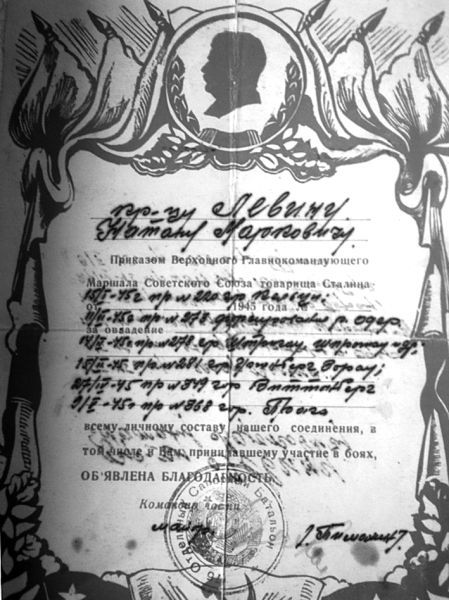 кр-цу Левину
Натану Марковичу
Приказом Верховного Главнокомандующего
Маршала Советского Союза товарища Сталина
15/I-45г пр № 220 гр. Кельцы;
от 1945 года
пр № 278 форсирование р. Одер.
за овладение
пр № 278 гр.
15/II-45 пр № 281 гр. Грюнберг, Зорау;
27/IV-45 пр № 349 гр. Виттенберг
9/V-45г пр № 368 гр. Прага
всему личному составу нашего соединения, в
том числе и Вам, принимавшему участие в боях,
ОБ'ЯВЛЕНА БЛАГОДАРНОСТЬ.
Командир части
майор
Отдельный Саперный Батальон